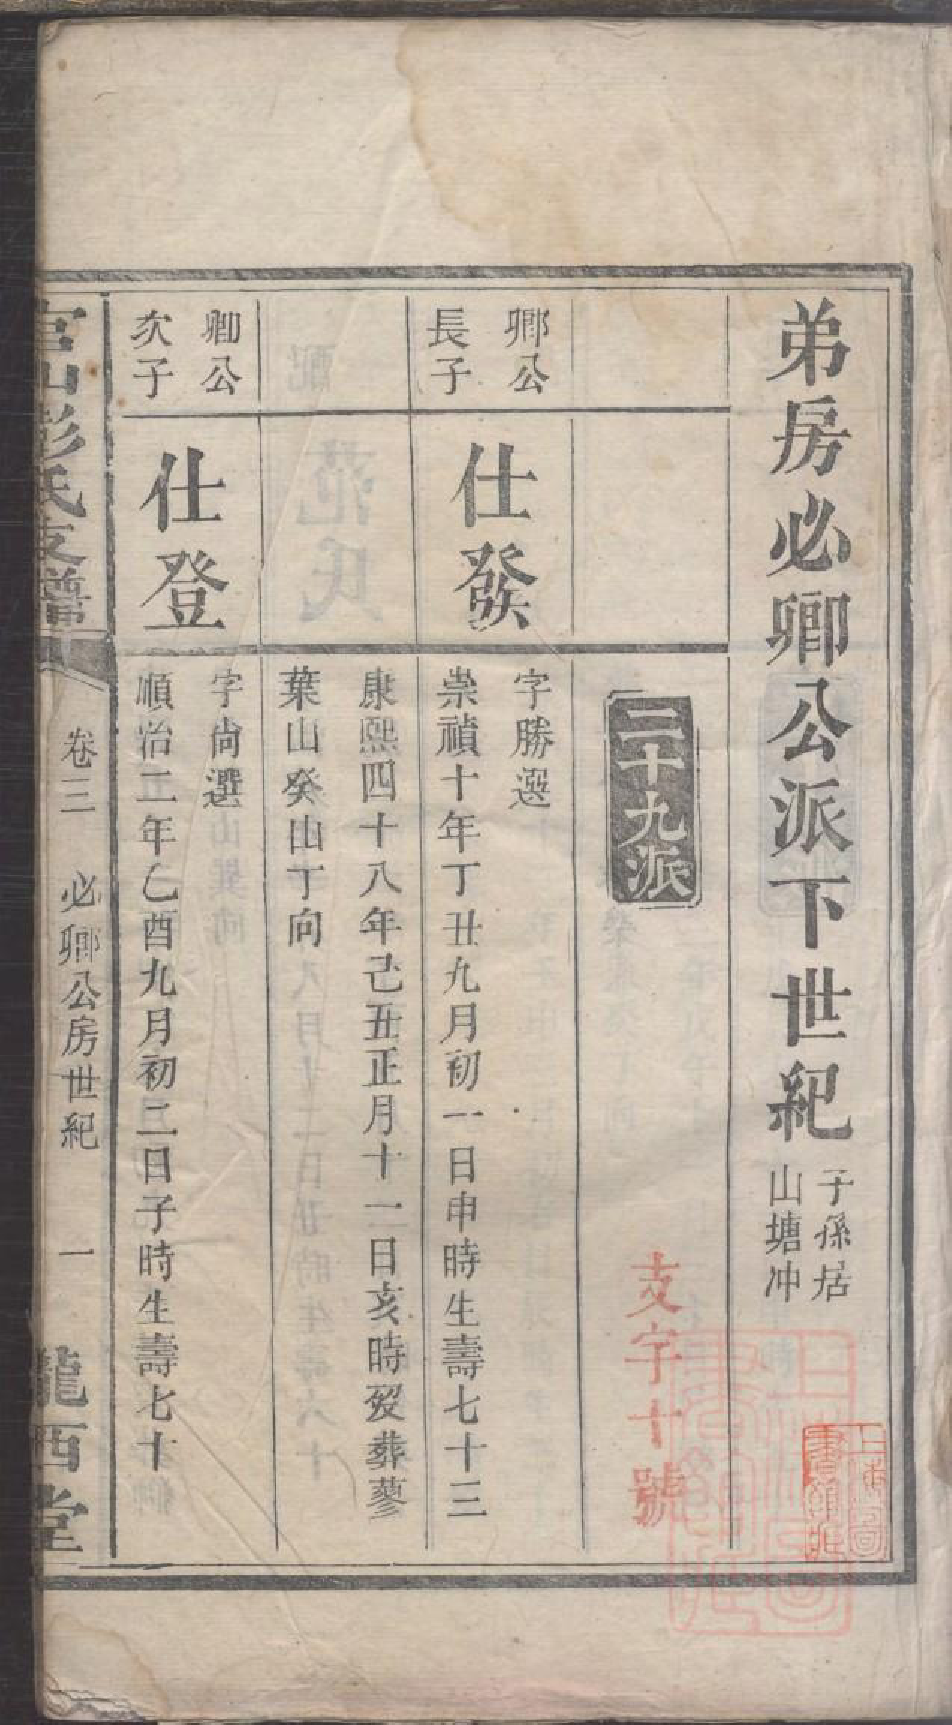 弟房必卿公派下世紀
子孫居
山塘冲
二十九派
支字十號
卿公
長子
仕發
字勝選
崇禎十年丁丑九月初一日申時生壽七十三
康熙四十八年己丑正月十二日亥時歿葬蓼
葉山癸山丁向
卿公
次子
仕登
字尚選
順治二年乙酉九月初二日子時生壽七十
官山彭氏支譜
卷三
必卿公房世紀
一
隴西堂
上海圖
書館藏